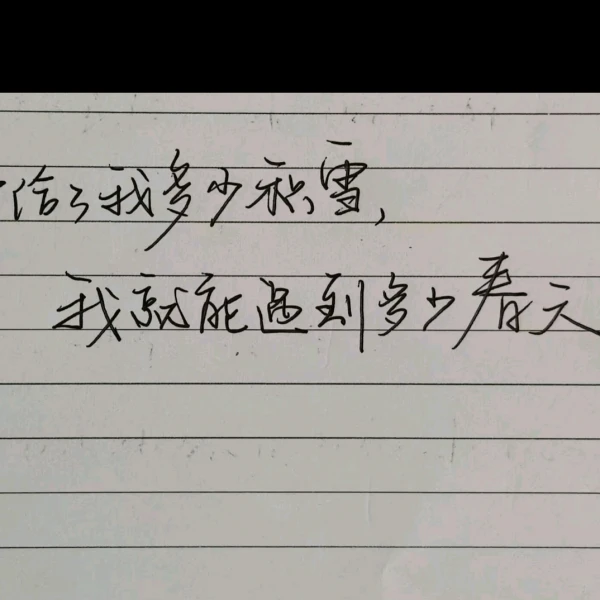 给了我多少积雪，
我就能遇到多少春天